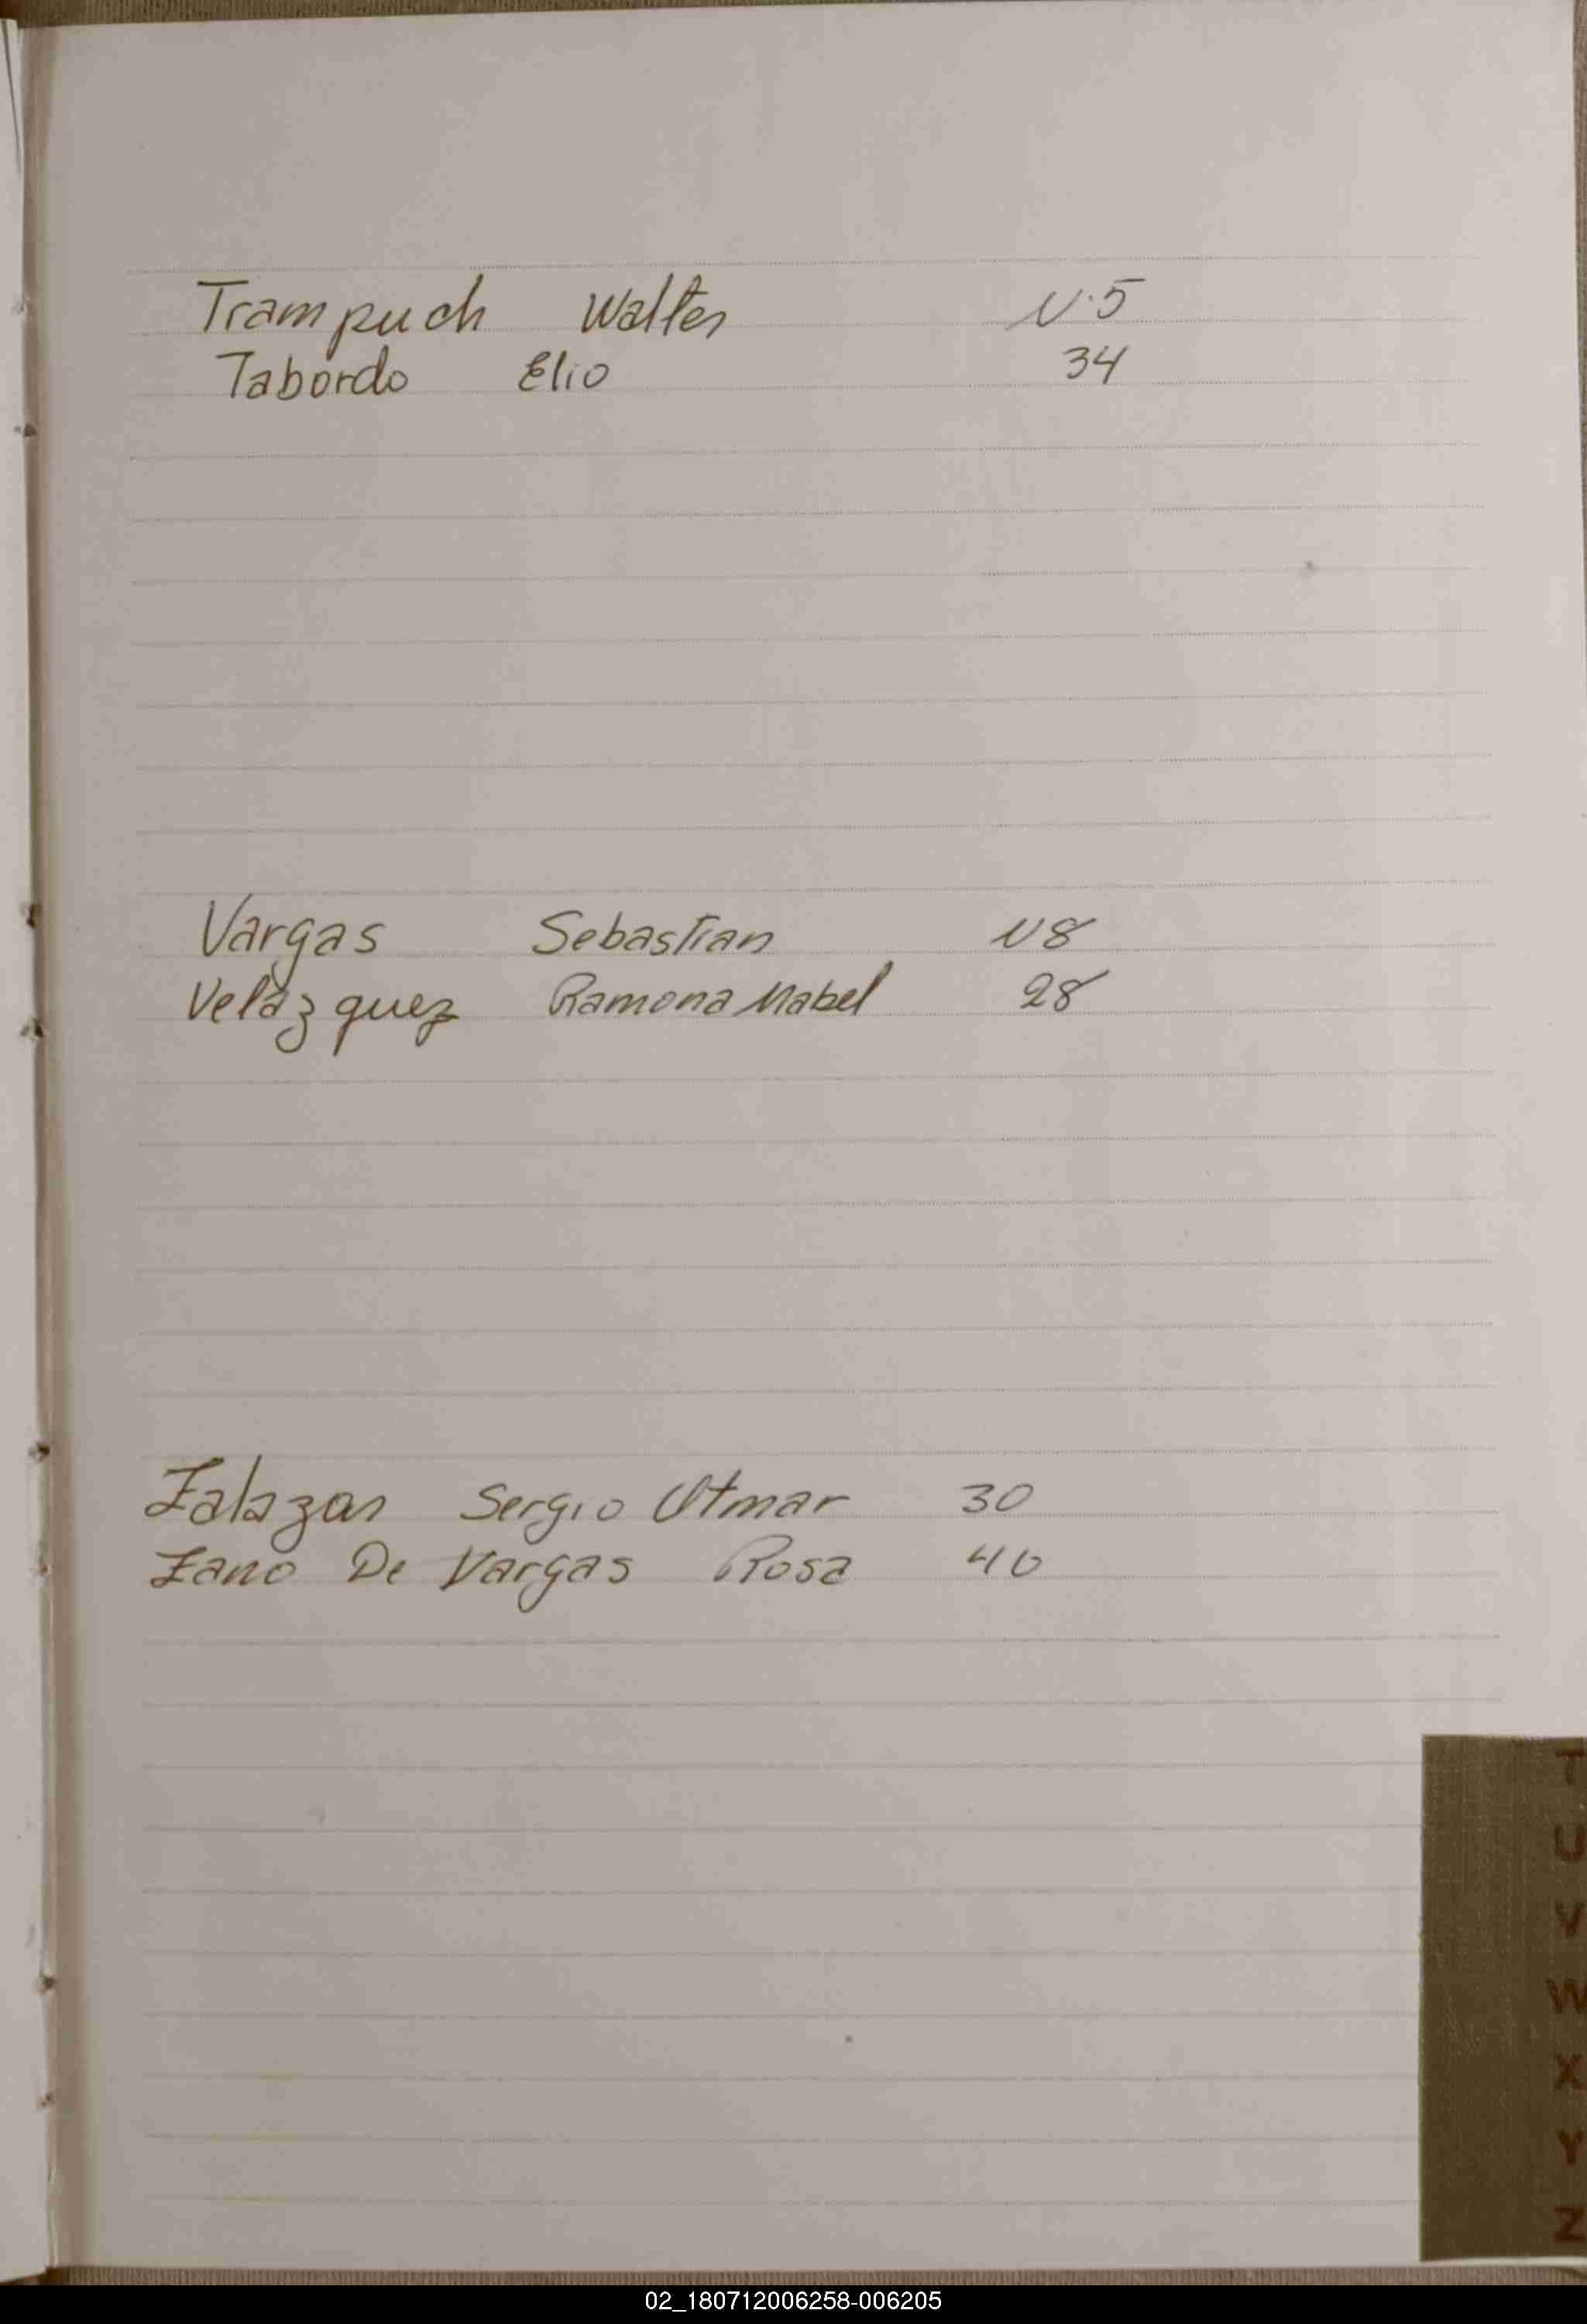 Trampuch Walter N·5
Tabordo Elio 34
Vargas Sebastian N8
Velázquez Ramona Mabel 28
Zalazar Sergio Otmar 30
Zano De Vargas Rosa 40
T
U
V
W
X
Y
Z
02_180712006258-006205